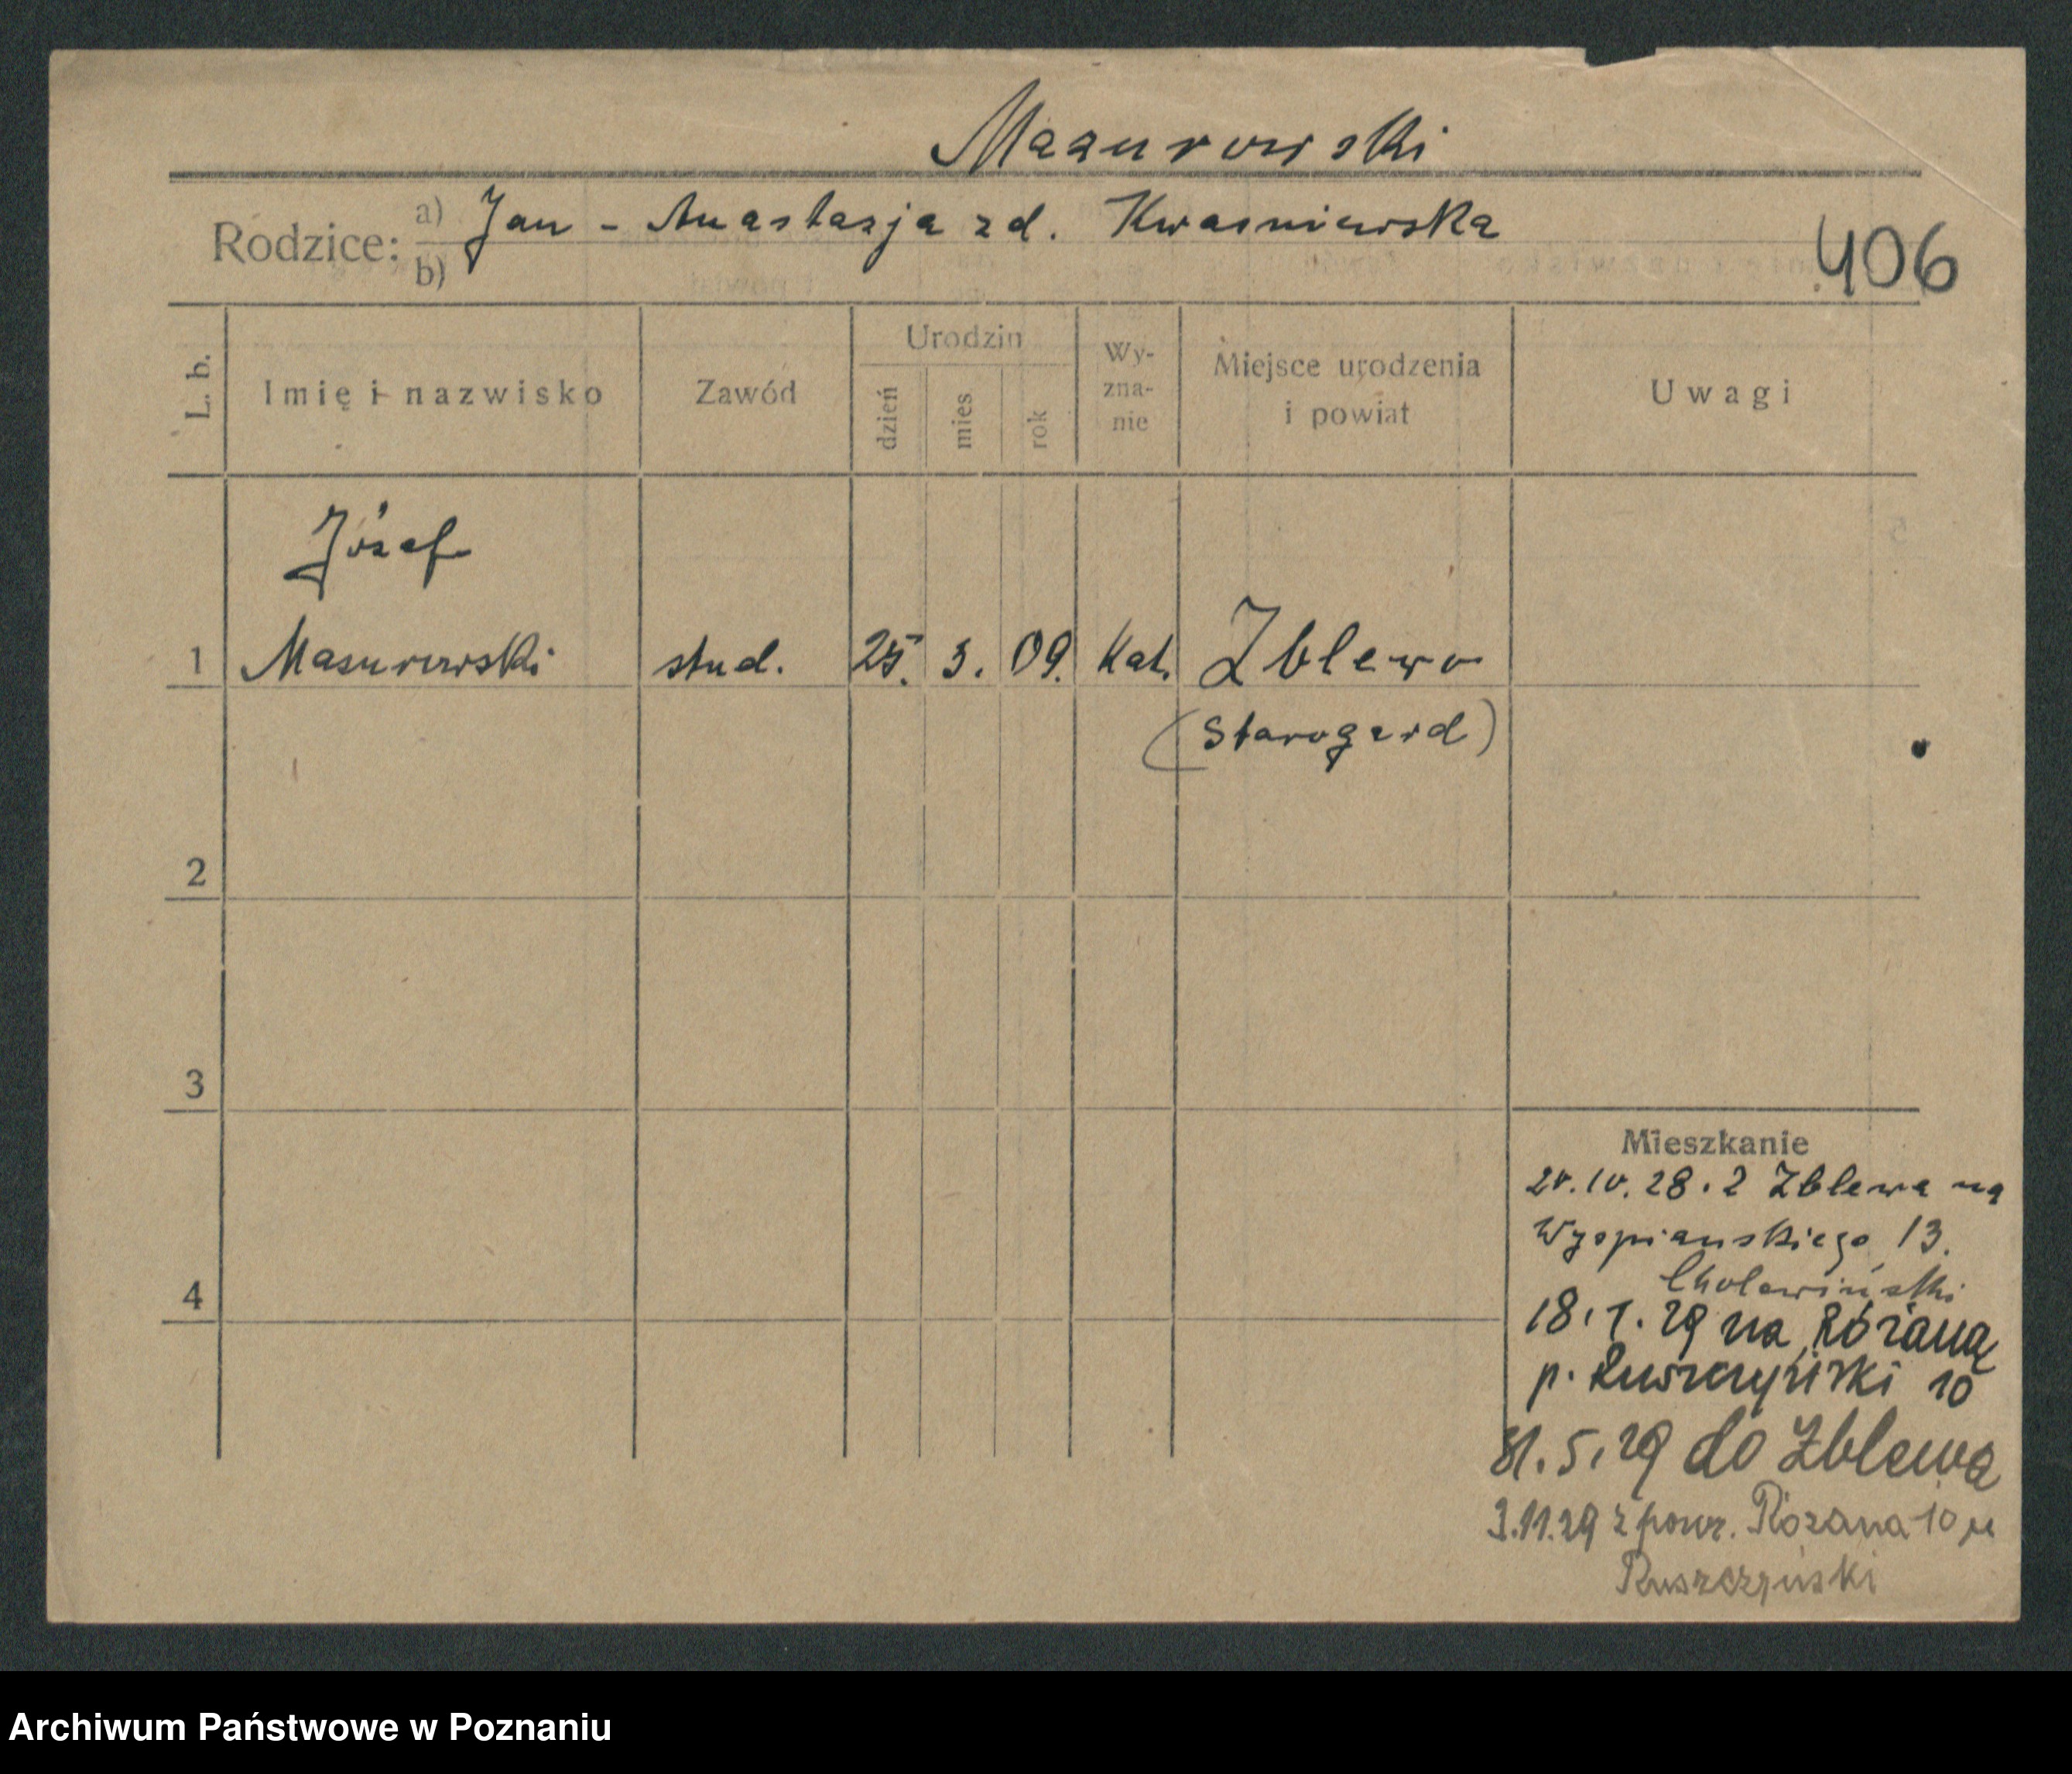 Mazurowski
Rodzice: a) Jan - Anastazja z d. Kwaśniewska
b)
406
L. b.
Imię i nazwisko
Zawód
Urodzin
dzień
mies
rok
Wy-
zna-
nie
Miejsce urodzenia
i powiat
Uwagi
Józef
1 Mazurowski stud. 25. 3. 09. Kat. Zblewo
(Starogard)
2
3
4
Mieszkanie
20.10.28. z Zblewa na
Wyspianskiego 13.
Cholewiński
18.1.29 na Różaną
p. 10
31.5.29 do Zblewa
3.11.29 z powr. Różana 10 u
Ruszczyński
Archiwum Państwowe w Poznaniu